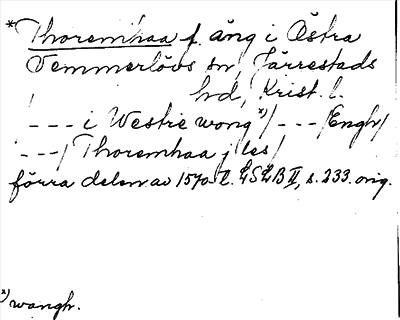 *Thoremhaa f. äng i Östra
Temmerlövs sn Järrestads
hd, Krist. l.
/ - - - i Westre wong x)/ - - - /Engh/
- - -/ Thoremhaa j les/
förra delen av 1570-t. LSLB II, s. 233. orig.
x) wangh.